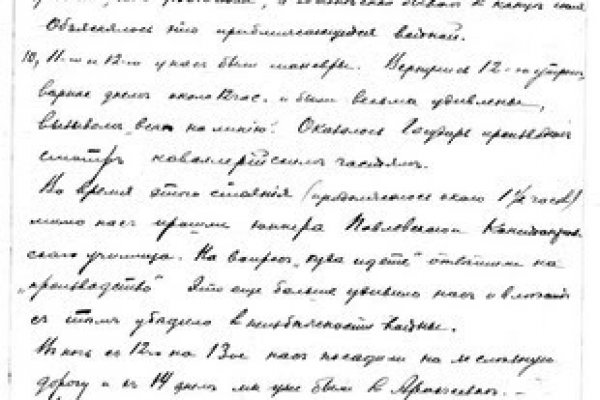 Объяснялось это приближающейся войной.
10, 11-го и 12-го у нас были маневры. Вернулись 12-го утром,
вернее днем около 12 час. и были весьма удивлены,
вызовом "всех на линию". Оказалось Государь производит
смотр кавалерийским частям.
Во время этого стояния (продолжалось около 1½ часов)
мимо нас прошли юнкера Павловского
училища. На вопрос "куда идете" ответили на
"производство" Это еще больше удивило нас и
с тем убедило в неизбежности войны.
В ночь с 12го на 13ое нас посадили на железную
дорогу и с 14 днем мы уже были в